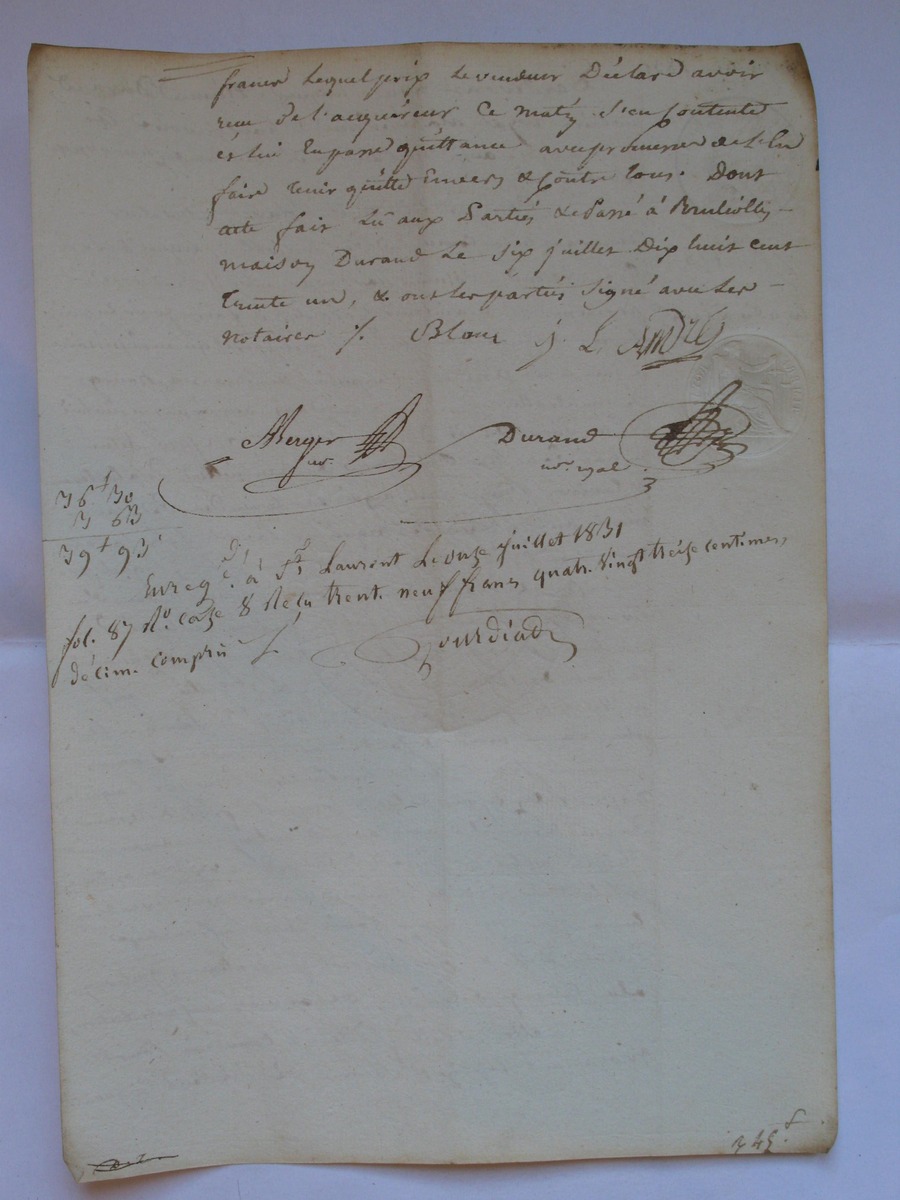 francs lequel prix le vendeur Déclare avoir
reçu de l'acquéreur Ce matin s'en contente
et lui En passe quittance avec promesse de l'en
faire tenir quitte Envers & contre tous. Dont
acte fait Lu aux Parties & Passé à
maison Durand Le Six juillet Dix huit cent
trente un, & ont les parties Signé avec Les
notaires /. Blanc j. L. André
Berger Durand
nre. nre. royal
36f 30
3 63
39f 93c
Enregé. à St. Laurent Le onze juillet 1831
fol. 87 Ro. case 8 Reçu trente neuf francs quatre vingt treize centimes,
décime compris